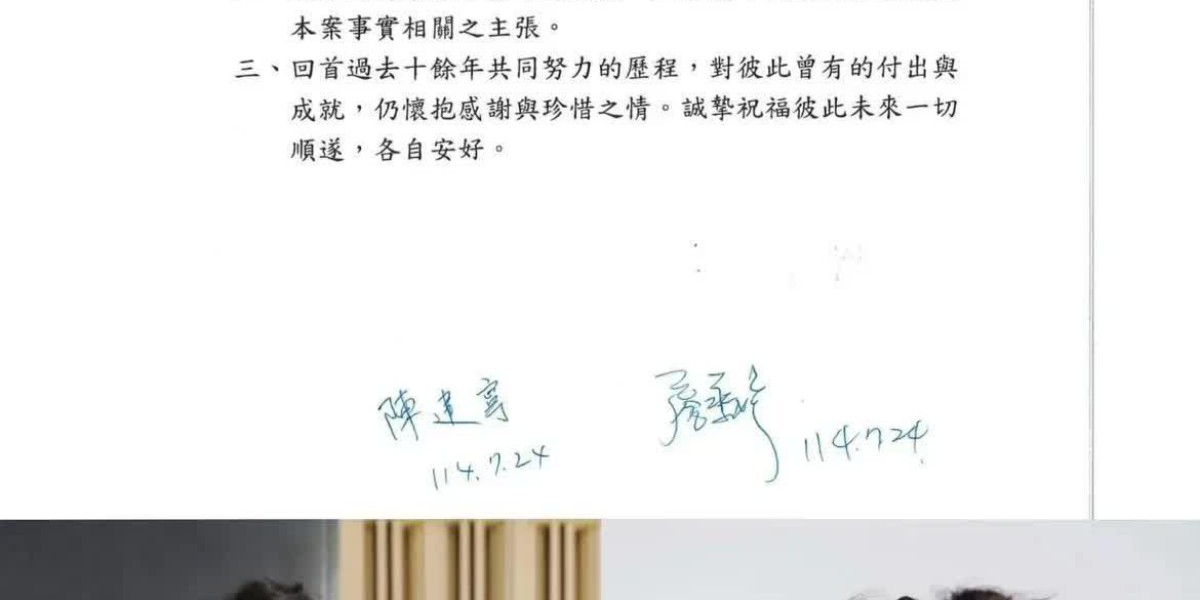 本案事實相關之主張。
三、回首過去十餘年共同努力的歷程，對彼此曾有的付出與
成就，仍懷抱感謝與珍惜之情。誠摯祝福彼此未來一切
順遂，各自安好。
陳建寧
114.7.24
114.7.24